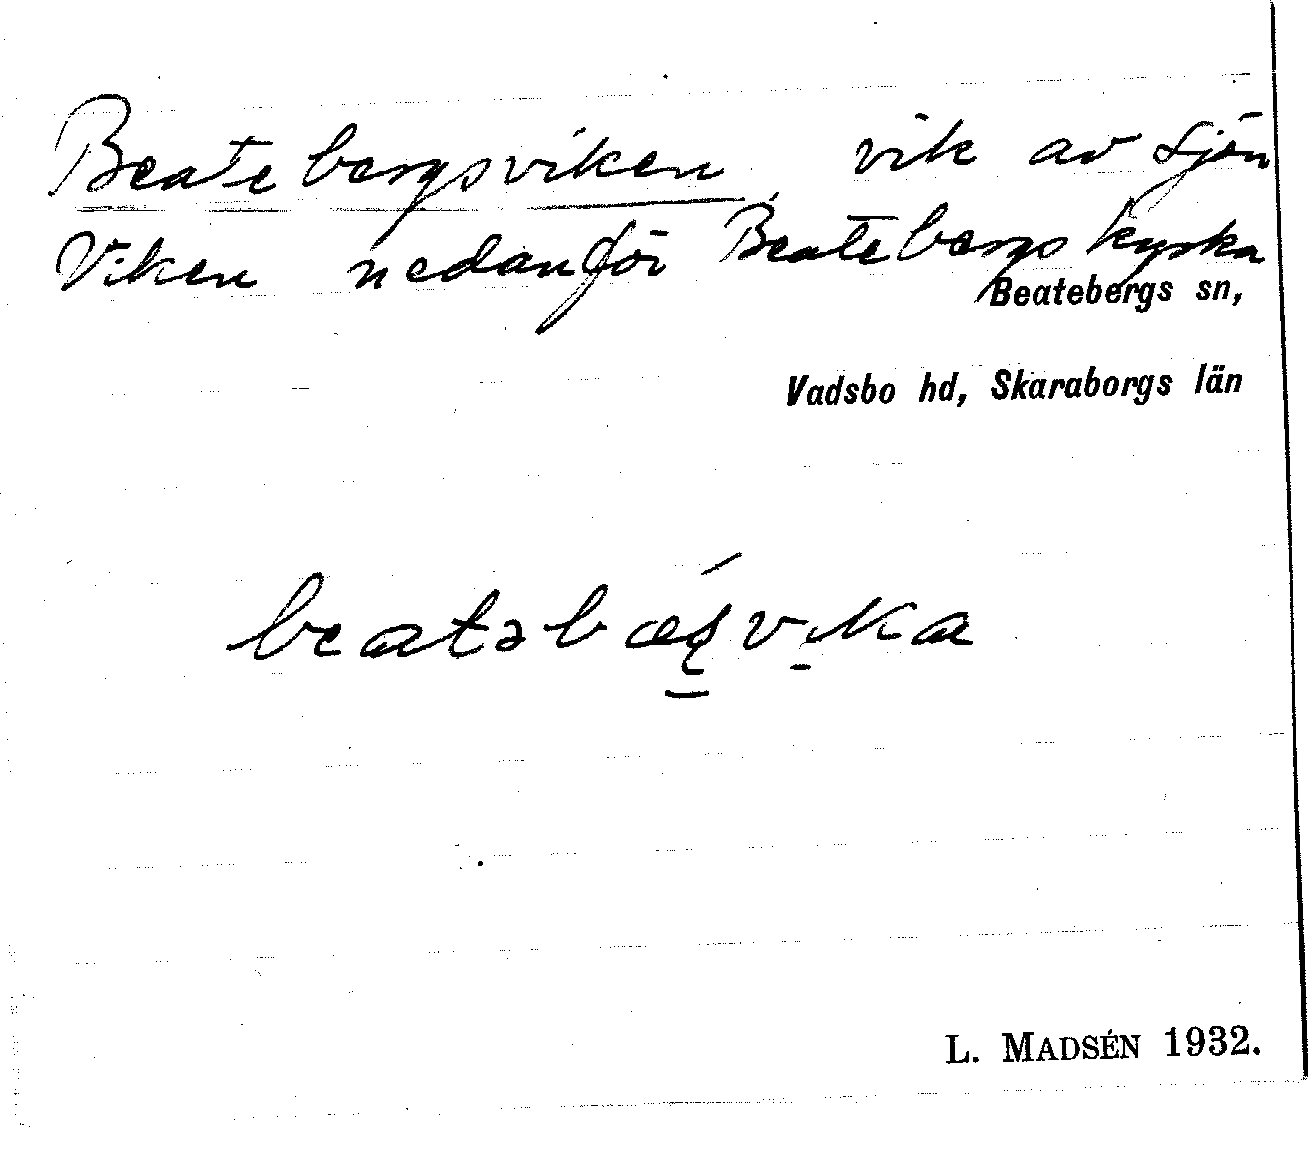 Beatebergsviken, vik av sjön
Viken nedanför Beatebergs kyrka
Beatebergs sn,
Vadsbo hd, Skaraborgs län
L. MADSÉN 1932.